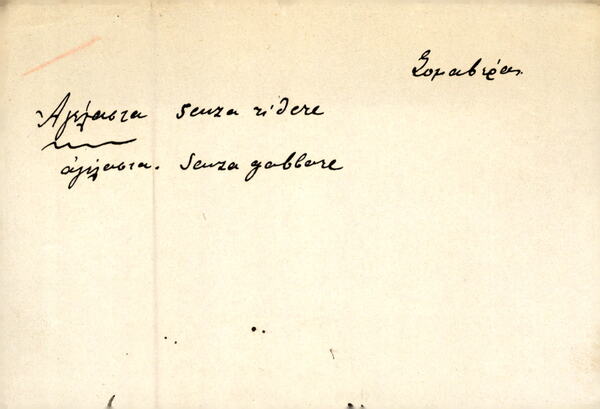 Σομαβέρα.
Ἀγέλαστα senza ridere
ἀγέλαστα. senza gabbare